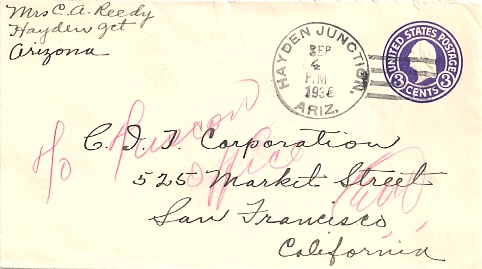 Mrs C. A. Reedy
Hayden Jct
Arizona
HAYDEN JUNCTION,
SEP
4
P.M
ARIZ.
UNITED STATES POSTAGE
3 3
CENTS
C. I. T. Corporation
525 Market Street
San Francisco
California
office